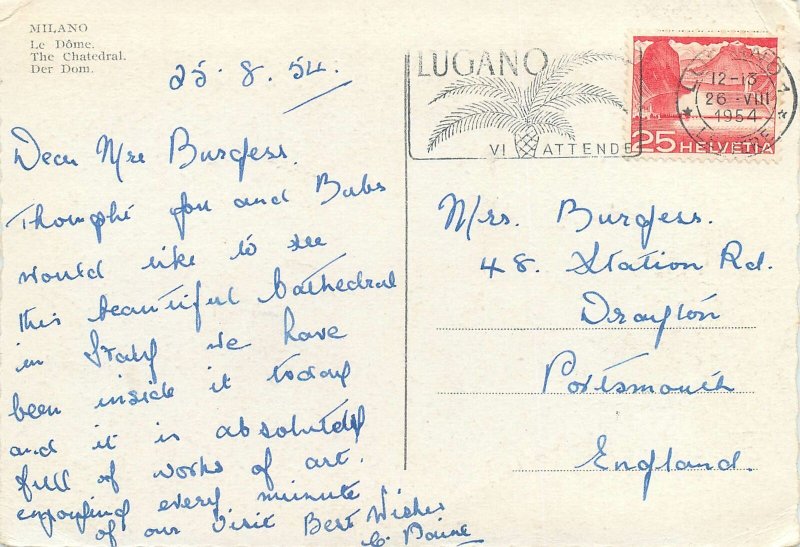 MILANO
Le Dôme.
The Chatedral.
Der Dom.
25. 8. 54.
Dear Mrs Burgess.
Thought you and Babs
would like to see
this beautiful Cathedral
in Italy we have
been inside it today
and it is absolutely
full of works of art.
enjoying every minute
of our visit Best Wishes
C. Paine
LUGANO
VI ATTENDE
12-13
26 -VIII
1954
25 HELVETIA
Mrs. Burgess.
48. Station Rd.
Drayton
Portsmouth
England.